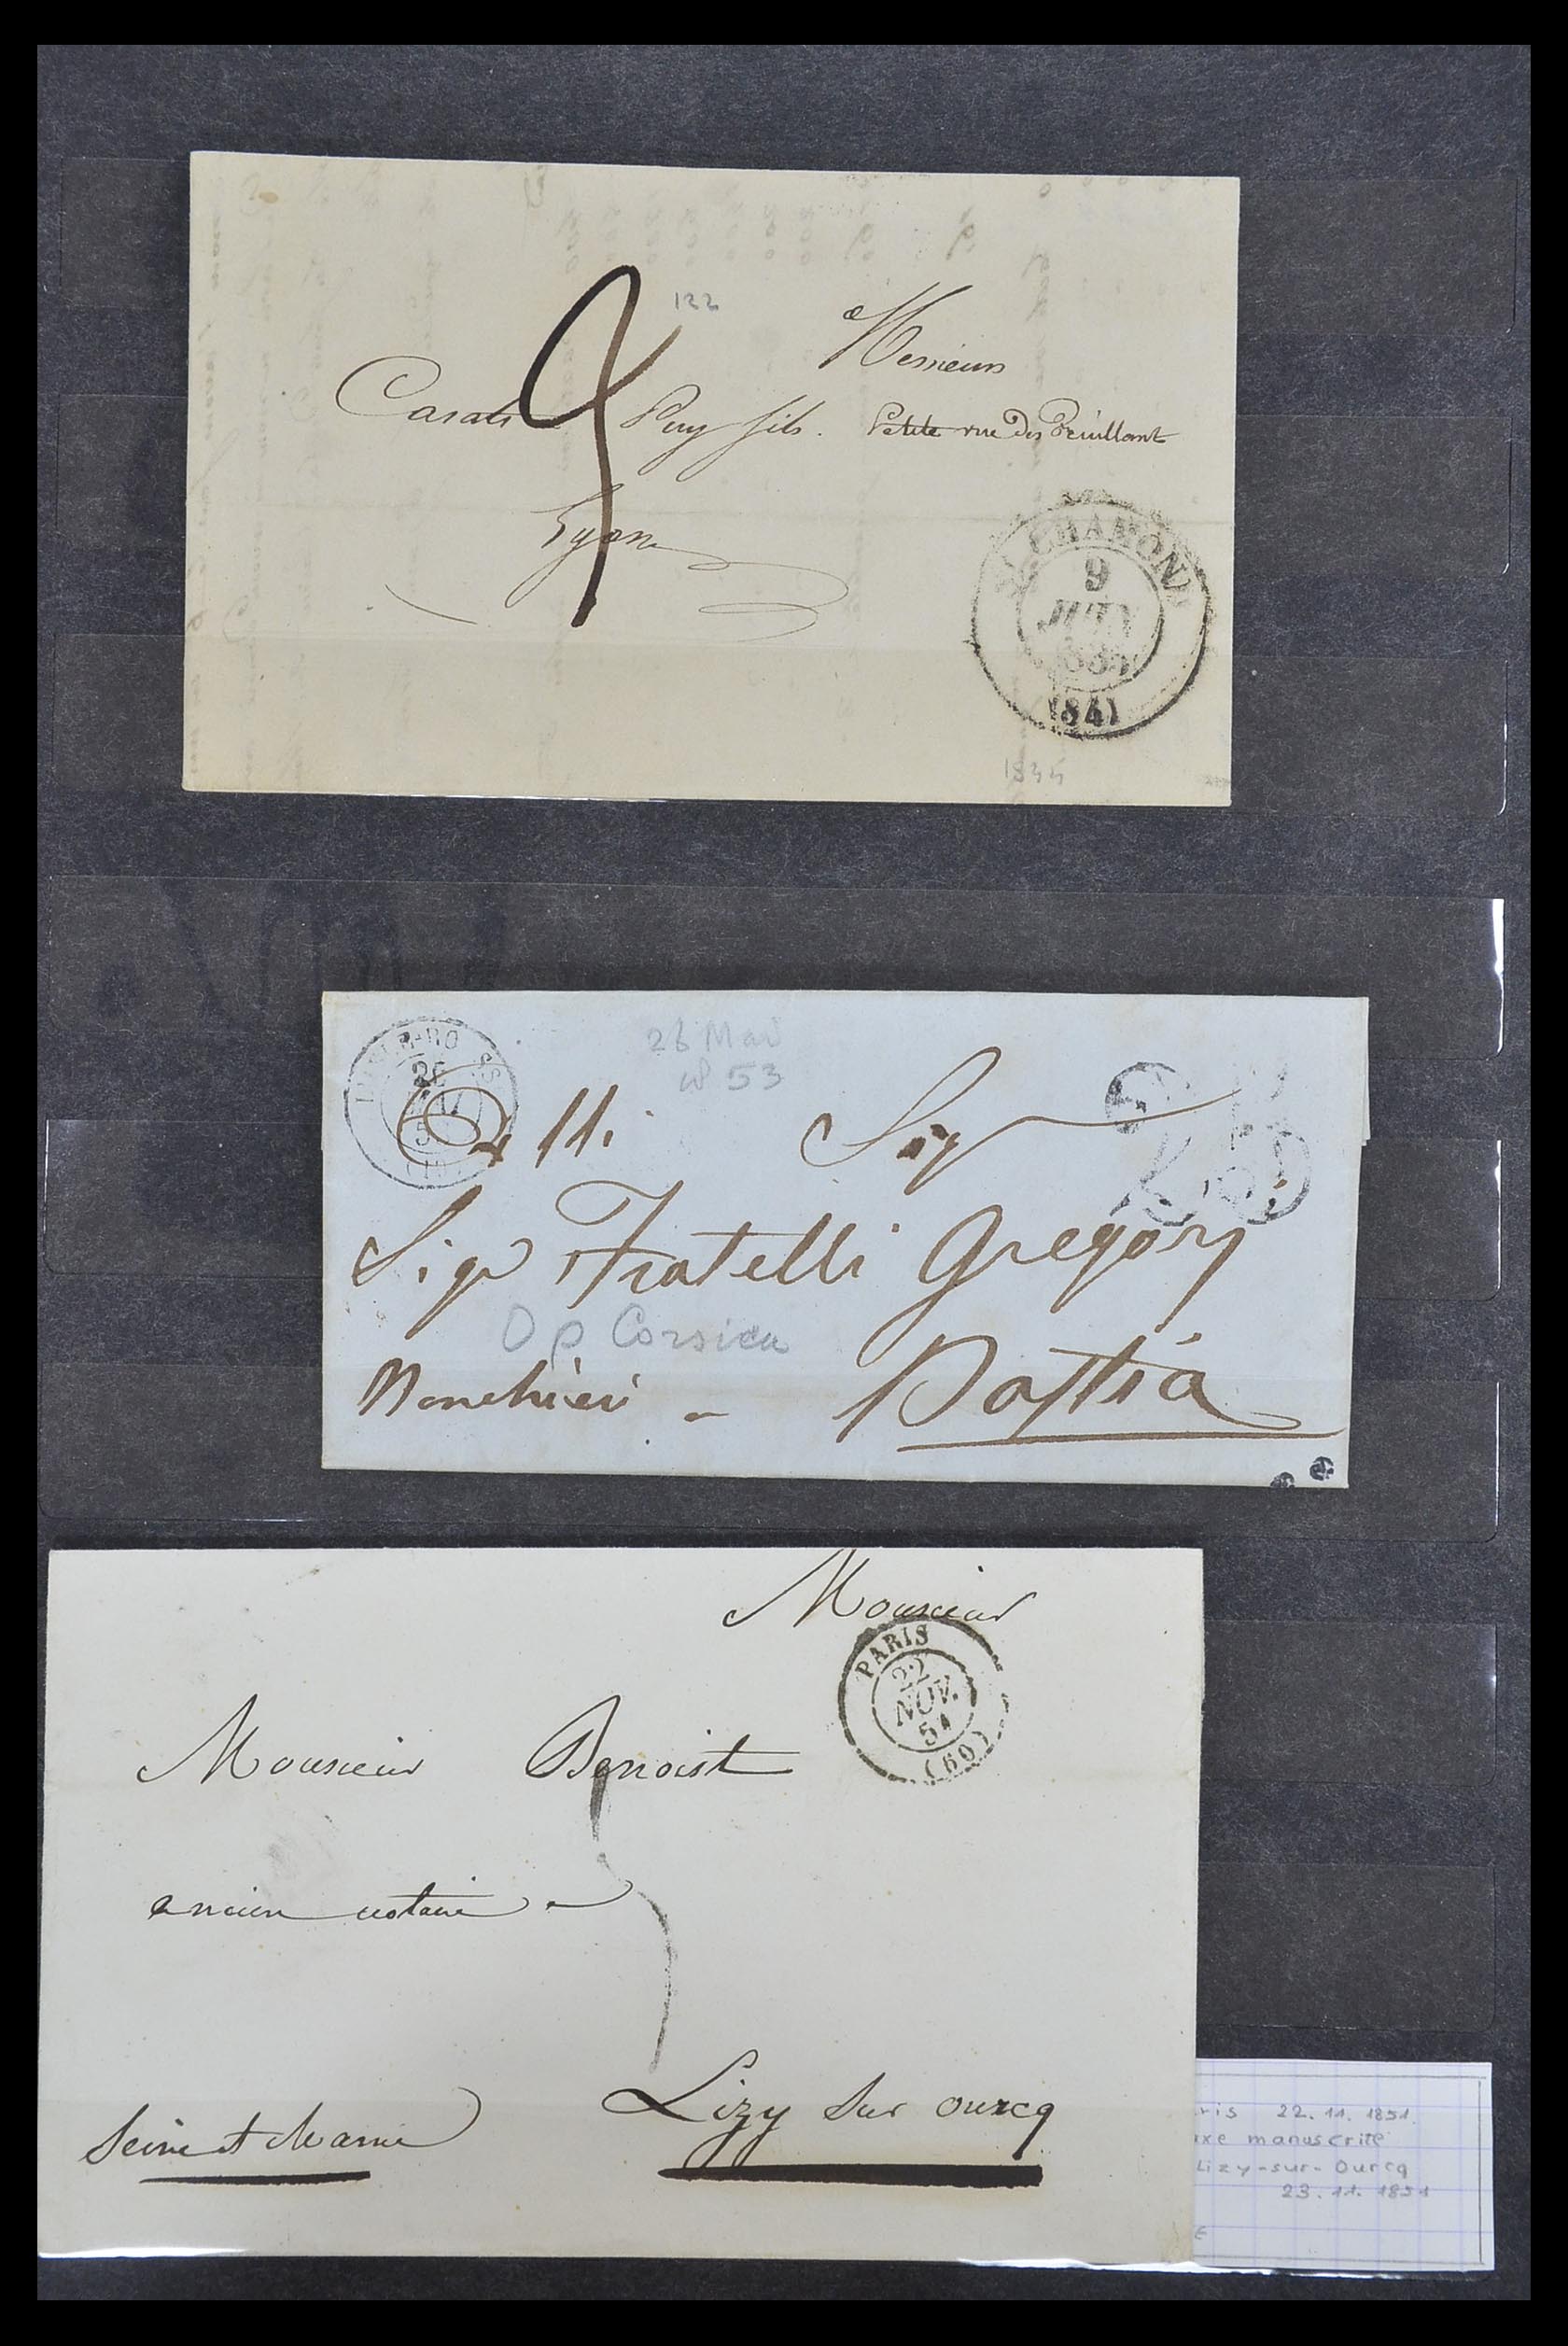 122
Messieurs
Casati Puy fils. Petite rue des Feuillant
Lyon
St CHAMOND
9
JUIN
1835
(84)
1835
26 Mai
53
26
Sig
Sigri Fratelli Gregorj
Op Corsica
Bastia
Monsieur
PARIS
22
NOV.
51
(60)
Monsieur Benoist
ancien notaire
Lizy sur ourcq
Seine et Marne
ris 22.11.1851.
xe manuscrite
Lizy-sur-Ourcq
23.11.1851
E